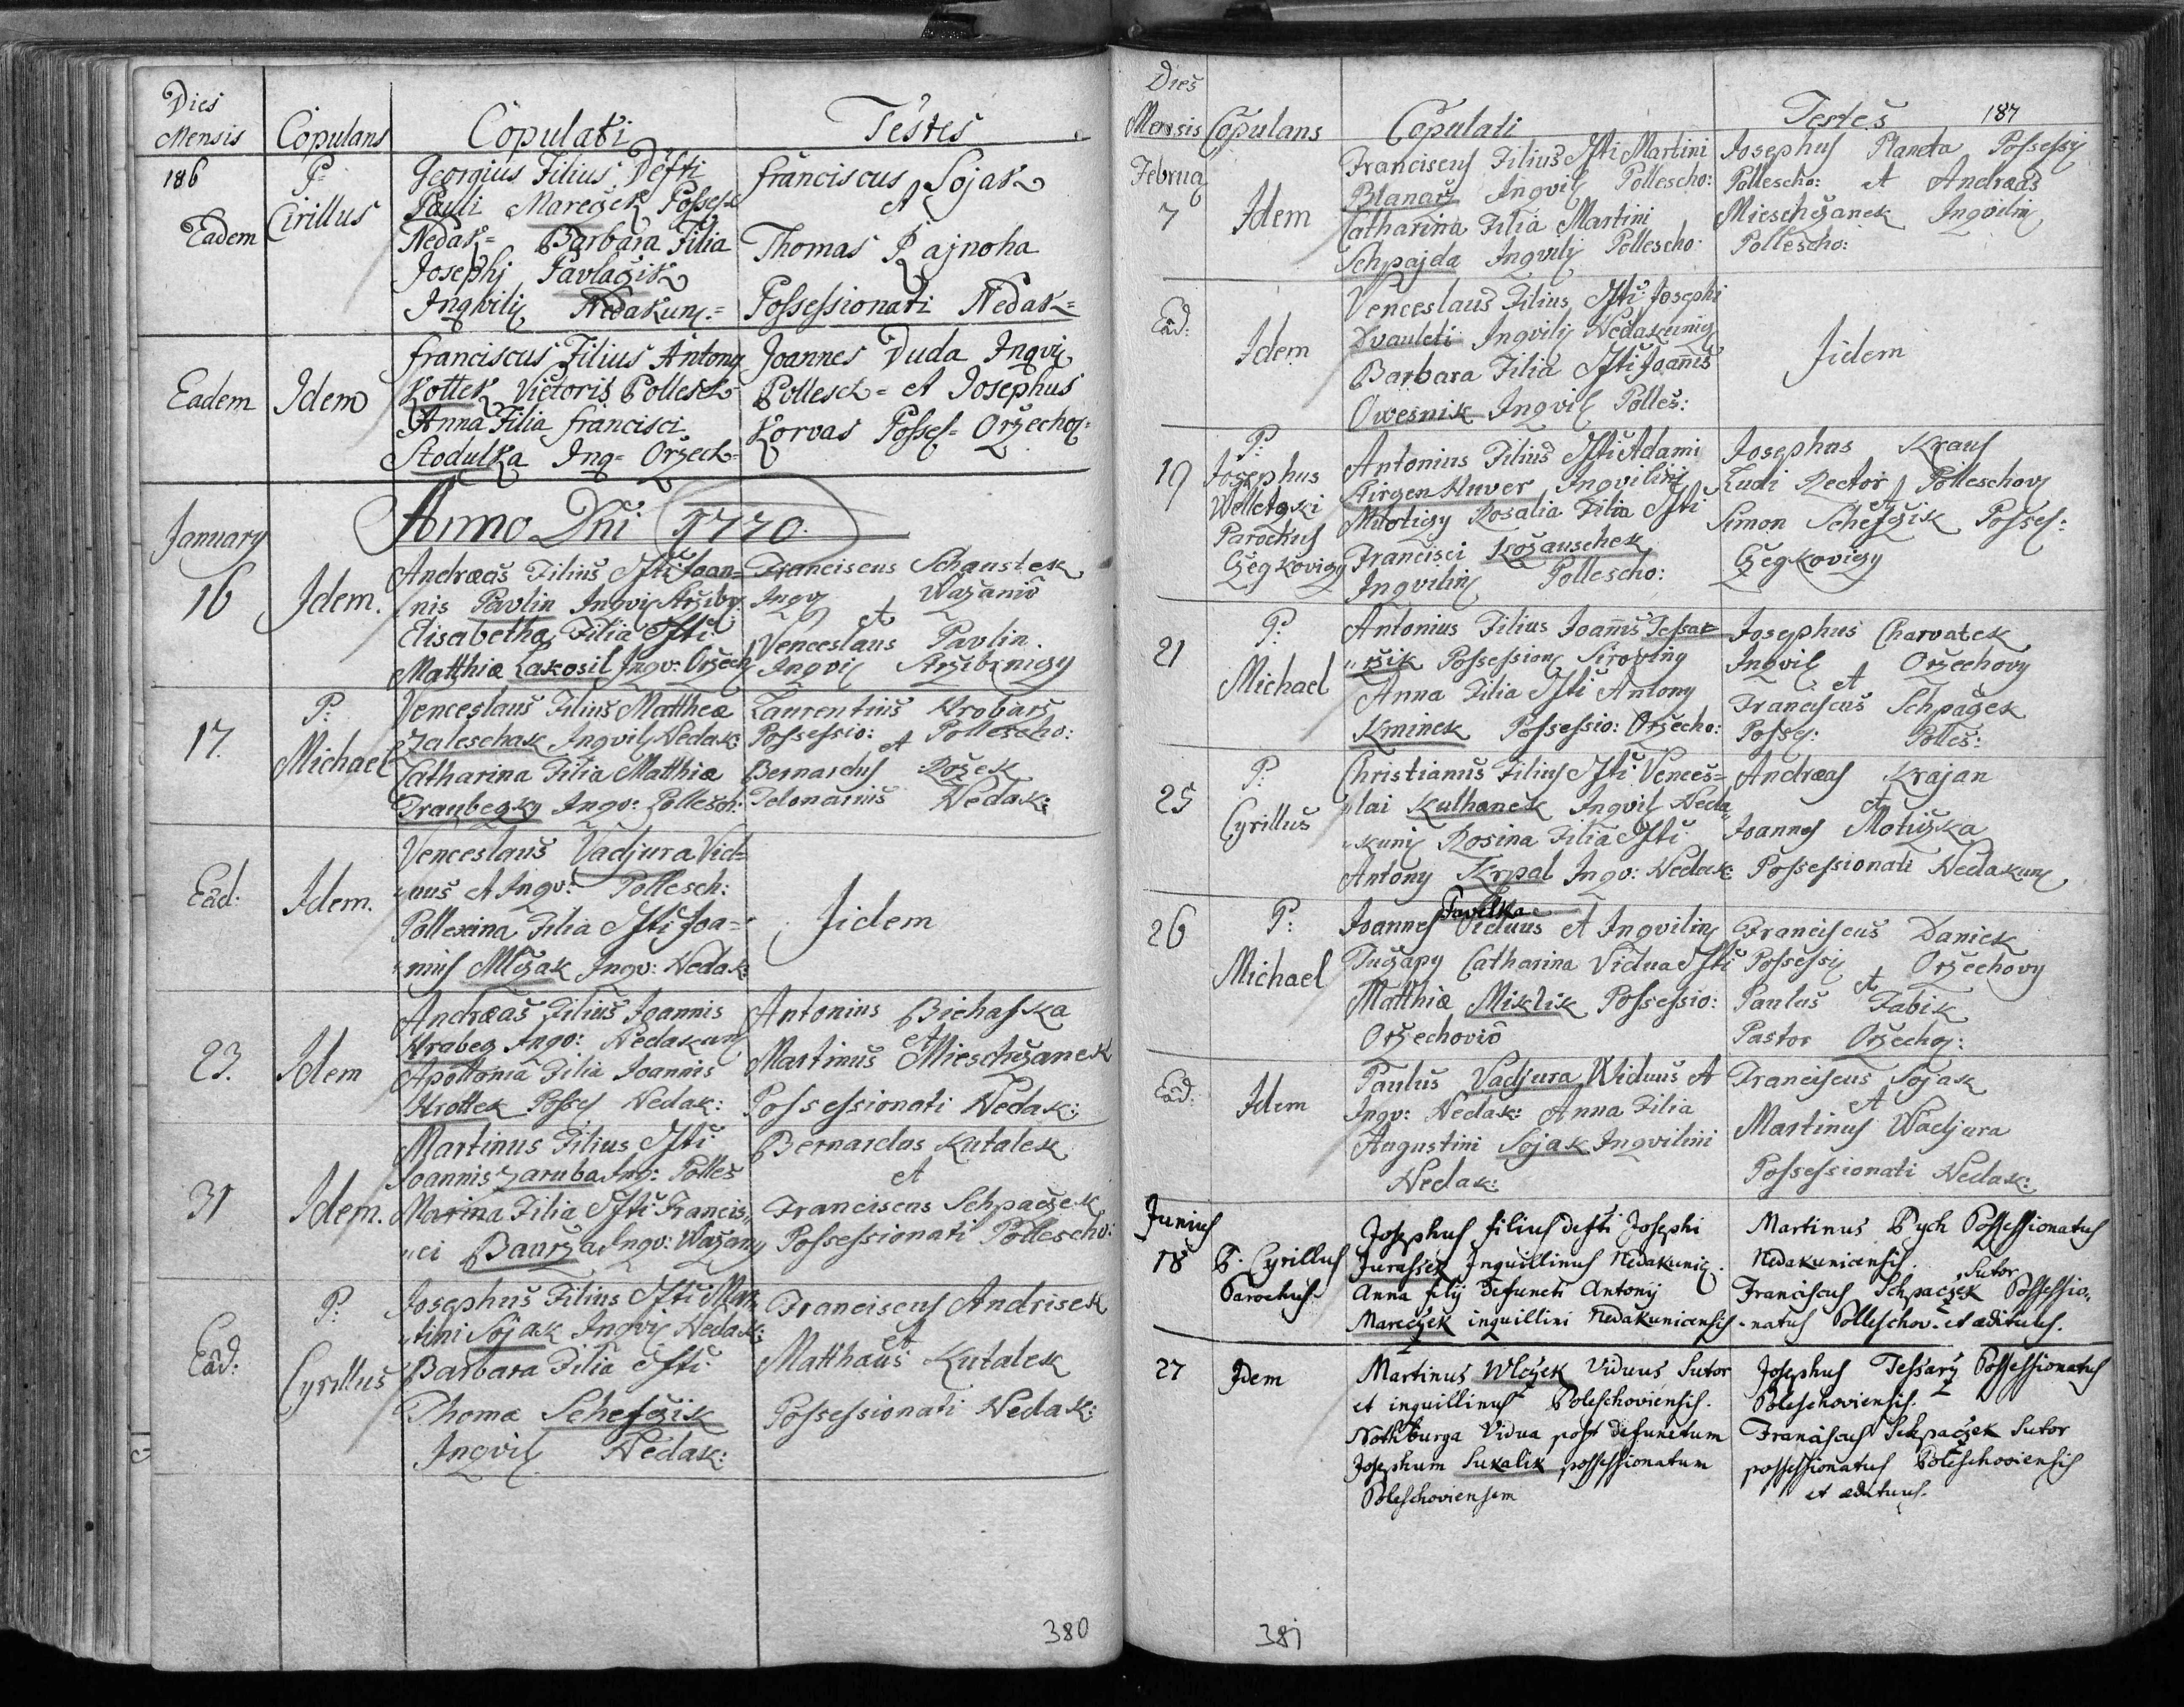 Dies
Mensis Copulans Copulati Testes
186
Eadem
P:
Cirillus
Georgius Filius Defti
Pauli Mareczek Possess
Nedak= Barbara Filia
Josephj Pavlaczik
Ingvilij Nedakunz=
Franciscus Sojak
et
Thomas Rajnoha
Possessionati Nedak=
Eadem Idem
Franciscus Filius Antony
Kottek Victoris Pollesch=
Anna Filia Francisci
Stodulka Ing= Orzech=
Joannes Duda Ingvi
Pollesch= et Josephus
Korvas Posses= Orzechov=
January
Anno Dni 1770.
16 Idem.
Andreas Filius Ifti Joan=
nis Pavlin Ingvil Strziby
Elisabetha Filia Ifti
Matthiæ Zakosil Ingv: Orzech
Franciscus Schaustek
Ingv Wazanio
et
Venceslaus Pavlin
Ingvil Strzibrnigy
17.
P:
Michael
Venceslaus Filius Matthea
Zaleschak Ingvil Nedak:
Catharina Filia Matthiæ
Draubegky Ingv: Pollesch:
Laurentius Hrobars
Possessio: Pollescho:
et
Bernardus Rozek
Telonarius Nedak:
Ead: Idem.
Venceslaus Vadjura Vid=
uus et Ingv: Pollesch:
Pollexina Filia Ifti Joa=
nnis Mlczak Ingv: Nedak:
Jidem
23. Idem
Andreas Filius Joannis
Hrabeg Ingv: Nedakun
Apollonia Filia Joannis
Hrottek Posses Nedak:
Antonius Bichasska
et
Martinus Mieschczanek
Possessionati Nedak:
31 Idem.
Martinus Filius Ifti
Joannis Zaruba Ing: Polles
Marina Filia Ifti Francis,,
,,ci Baurza Ingv: Wazany
Bernardus Kutalek
et
Franciscus Schpaczek
Possessionati Pollescho:
Ead:
P:
Cyrillus
Josephus Filius Ifti Mar,,
,,tini Sojak Ingvil Nedak:
Barbara Filia Ifti
Thomæ Schefczik
Ingvil Nedak:
Franciscus Andrisek
et
Matthæus Kutalek
Possessionati Nedak:
380
Dies
Mensis Copulans Copulati Testes 187
Februa
7 Idem
Franciscus Filius Ifti Martini
Blanarz Ingvil Pollescho:
Catharina Filia Martini
Schpajda Ingvilij Pollescho:
Josephus Planeta Possessi
Pollescho: et Andreas
Mieschczanek Ingvilin
Pollescho:
Ead: Idem
Venceslaus Filius Ifti Josephi
Dvauleti Ingvilij Nedakunig
Barbara Filia Ifti Joannis
Owesnik Ingvil Polles:
Jidem
19
P:
Josephus
Welletgski
Parochus
Czegkovigy
Antonius Filius Ifti Adami
Hirgen Huver Ingvilini
Milotigy Rosalia Filia Ifti
Francisci Kozauschek
Ingvilin Pollescho:
Josephus Kraus
Ludi Rector Polleschovy
et
Simon Schefczik Posses:
Czegkovigy
21
P:
Michael
Antonius Filius Joannis Tessar
,,rzik Possession Siroviny
Anna Filia Ifti Antony
Kminek Possessio: Orzecho:
Josephus Charvatek
Ingvil Orzechovy
et
Franciscus Schpaczek
Posses: Polles:
25
P:
Cyrillus
Christianus Filius Ifti Vences=
lai Kulhanek Ingvil Neda,,
,,kuni Rosina Filia Ifti
Antony Krpal Ingv: Nedak:
Andreas Krajan
et
Joannes Moticzka
Possessionati Nedakun
26
P:
Michael
Pavelka
Joannes Viduus et Ingvilin
Tuczapy Catharina Vidua Ifti
Matthiæ Miklik Possessio:
Orzechovio
Franciscus Daniek
Possessi Orzechovy
et
Paulus Fabik
Pastor Orzechov:
Ead: Idem
Paulus Vadjura Widuus et
Ingv: Nedak: Anna Filia
Augustini Sojak Ingvilini
Nedak:
Franciscus Sojak
et
Martinus Wadjura
Possessionati Nedak:
Junius
18
P. Cyrillus
Parochus
Josephus filius defti Josephi
Jurassek Inquillinus Nedakunic.
Anna filij Defuncti Antonij
Mareczek inquillini Nedakunicensis
Martinus Pych Possessionatus
Nedakunicensis.
Sutor
Franciscus Schpaczek Possessio,,
-natus Polleschov. et ædituus.
27 Idem
Martinus Wlczek Viduus Sutor
et inquillinus Poleschoviensis.
Nothburga Vidua post defunctum
Josephum Sukalik possessionatum
Poleschoviensem
Josephus Tessarz Possessionatus
Poleschoviensis.
Franciscus Schpaczek Sutor
possessionatus Poleschoviensis
et ædituus.
381